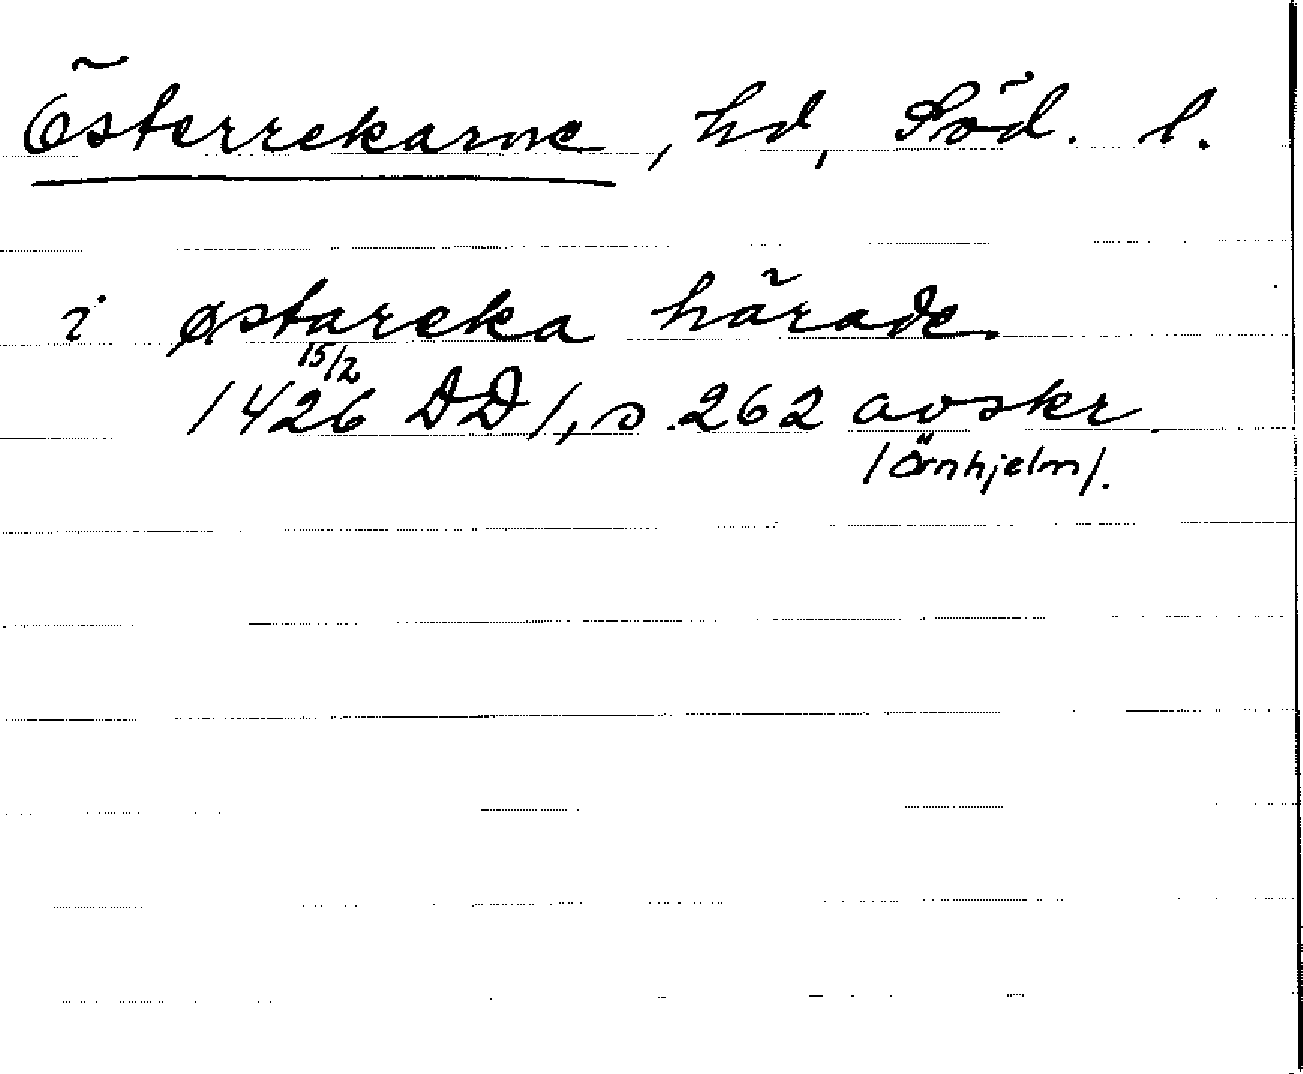 Österrekarne, hd, Söd. l.
i østareka härade
15/2
1426 DD 1, s. 262 avskr.
/Örnhjelm/.